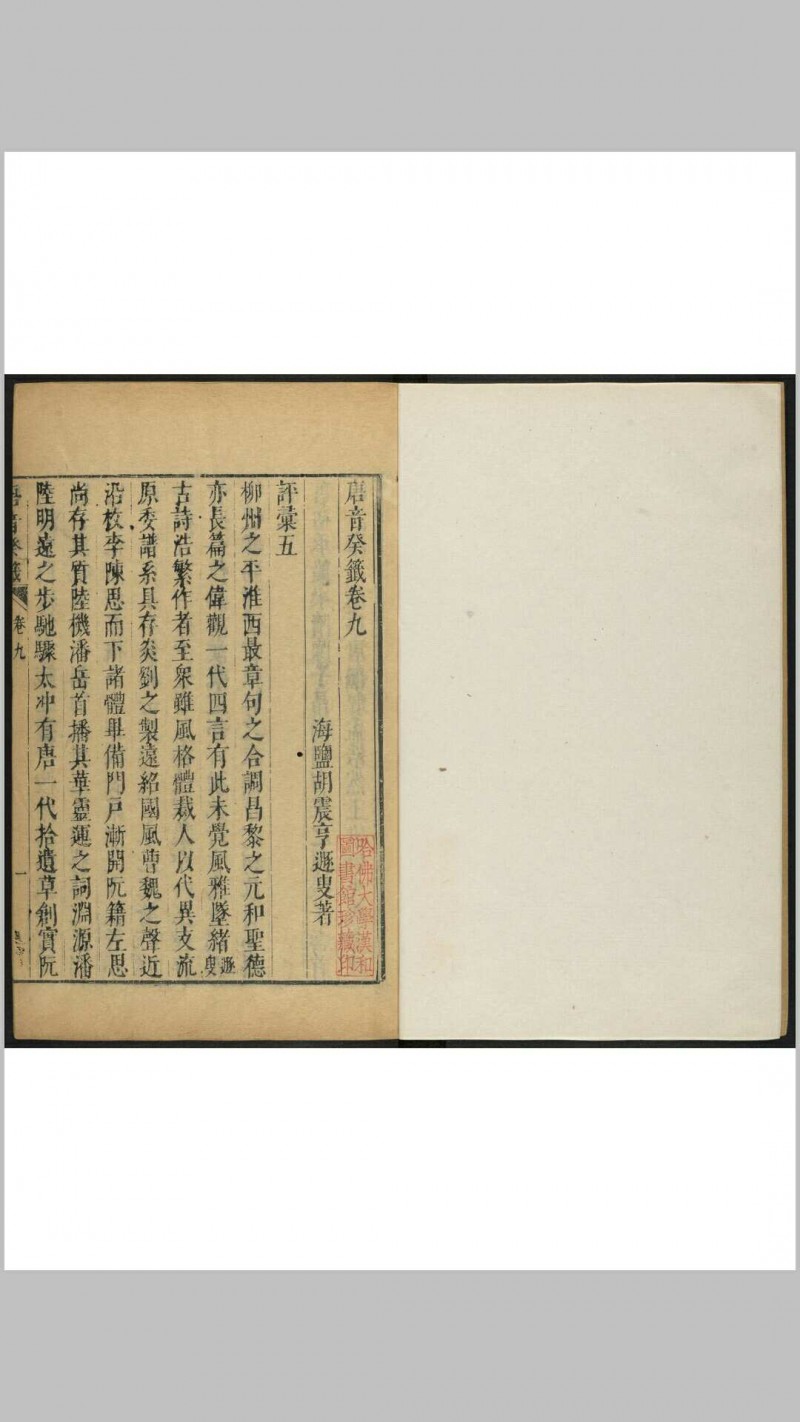 唐音癸籤卷九
海鹽胡震亨遯叟著
哈佛大學漢和
圖書館珍藏印
評彙五
柳州之平淮西最章句之合調昌黎之元和聖德
亦長篇之偉觀一代四言有此未覺風雅墜緒遯叟
古詩浩繁作者至衆雖風格體裁人以代異支流
原委譜系具存炎劉之製遠紹國風曹魏之聲近
沿枚李陳思而下諸體畢備門戶漸開阮籍左思
尚存其質陸機潘岳首播其華靈運之詞淵源潘
陸明遠之步馳驟太冲有唐一代拾遺草創實阮
唐音癸籤
卷九
一